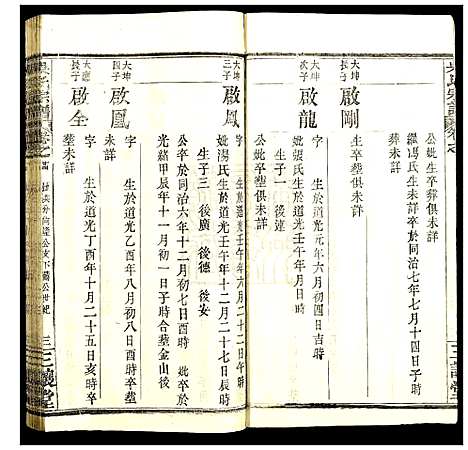 公妣生卒葬俱未詳
繼馮氏生未詳卒於同治七年七月十四日子時
葬未詳
大坤長子 啟剛
生卒葬俱未詳
大坤次子 啟龍
生於道光元年六月初四日吉時
妣張氏生於道光壬午年十二月二十七日辰時
生子一 後連
公妣卒葬俱未詳
大坤三子 啟鳳
字 生於道光壬午年六月二十二日午時
妣湯氏生於道光壬午年十二月二十七日辰時
生子三 後廣 後德 後安
公卒於同治六年十二月初七日酉時 妣卒於
光緒甲辰年十一月初一日子時合葬金山後
大坤四子 啟鳳
字 生於道光乙酉年八月初八日酉時卒葬
未詳
長子 啟全
字 生於道光丁酉年十月二十五日亥時卒
葬未詳
三 三讓堂